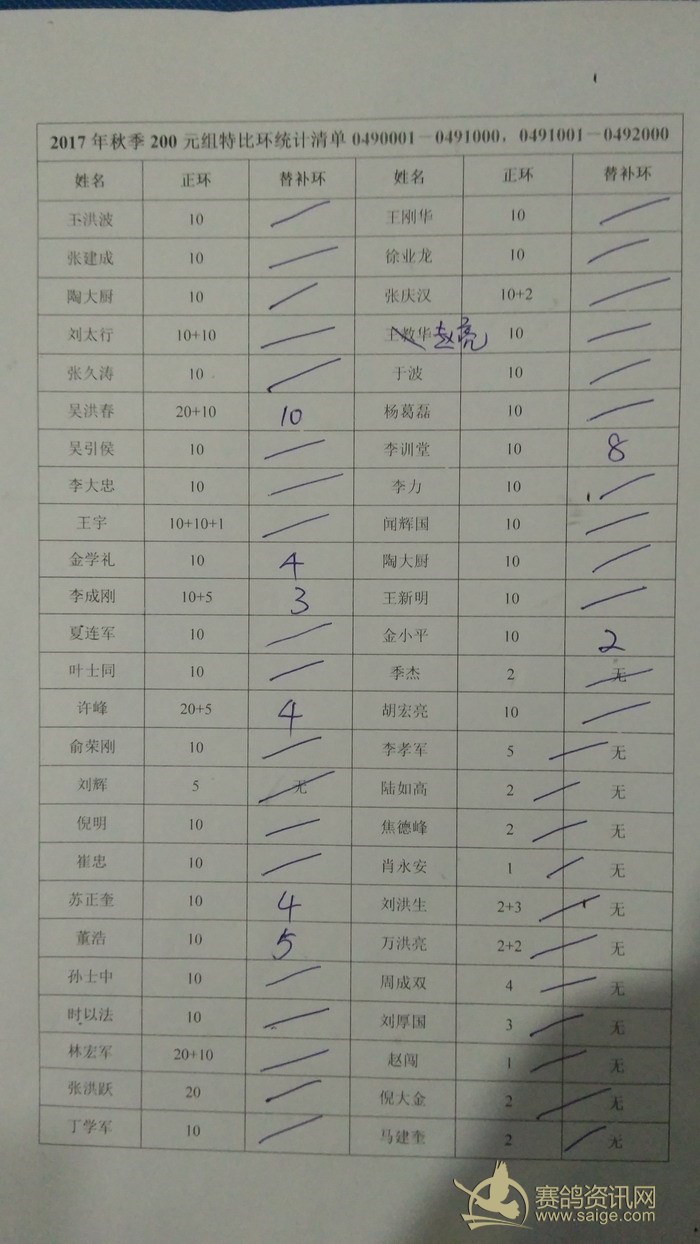 2017年秋季200元组特比环统计清单0490001—0491000，0491001—0492000
姓名 正环 替补环 姓名 正环 替补环
王洪波 10 王刚华 10
张建成 10 徐业龙 10
陶大厨 10 张庆汉 10+2
刘太行 10+10 王教华 赵亮 10
张久涛 10 于波 10
吴洪春 20+10 10 杨葛磊 10
吴引侯 10 李训堂 10 8
李大忠 10 李力 10
王宇 10+10+1 闻辉国 10
金学礼 10 4 陶大厨 10
李成刚 10+5 3 王新明 10
夏连军 10 金小平 10 2
叶士同 10 季杰 2 无
许峰 20+5 4 胡宏亮 10
俞荣刚 10 李孝军 5 无
刘辉 5 无 陆如高 2 无
倪明 10 焦德峰 2 无
崔忠 10 肖永安 1 无
苏正奎 10 4 刘洪生 2+3 无
董浩 10 5 万洪亮 2+2 无
孙士中 10 周成双 4 无
时以法 10 刘厚国 3 无
林宏军 20+10 赵闯 1 无
张洪跃 20 倪大金 2 无
丁学军 10 马建奎 2 无
赛鸽资讯网
www.saige.com